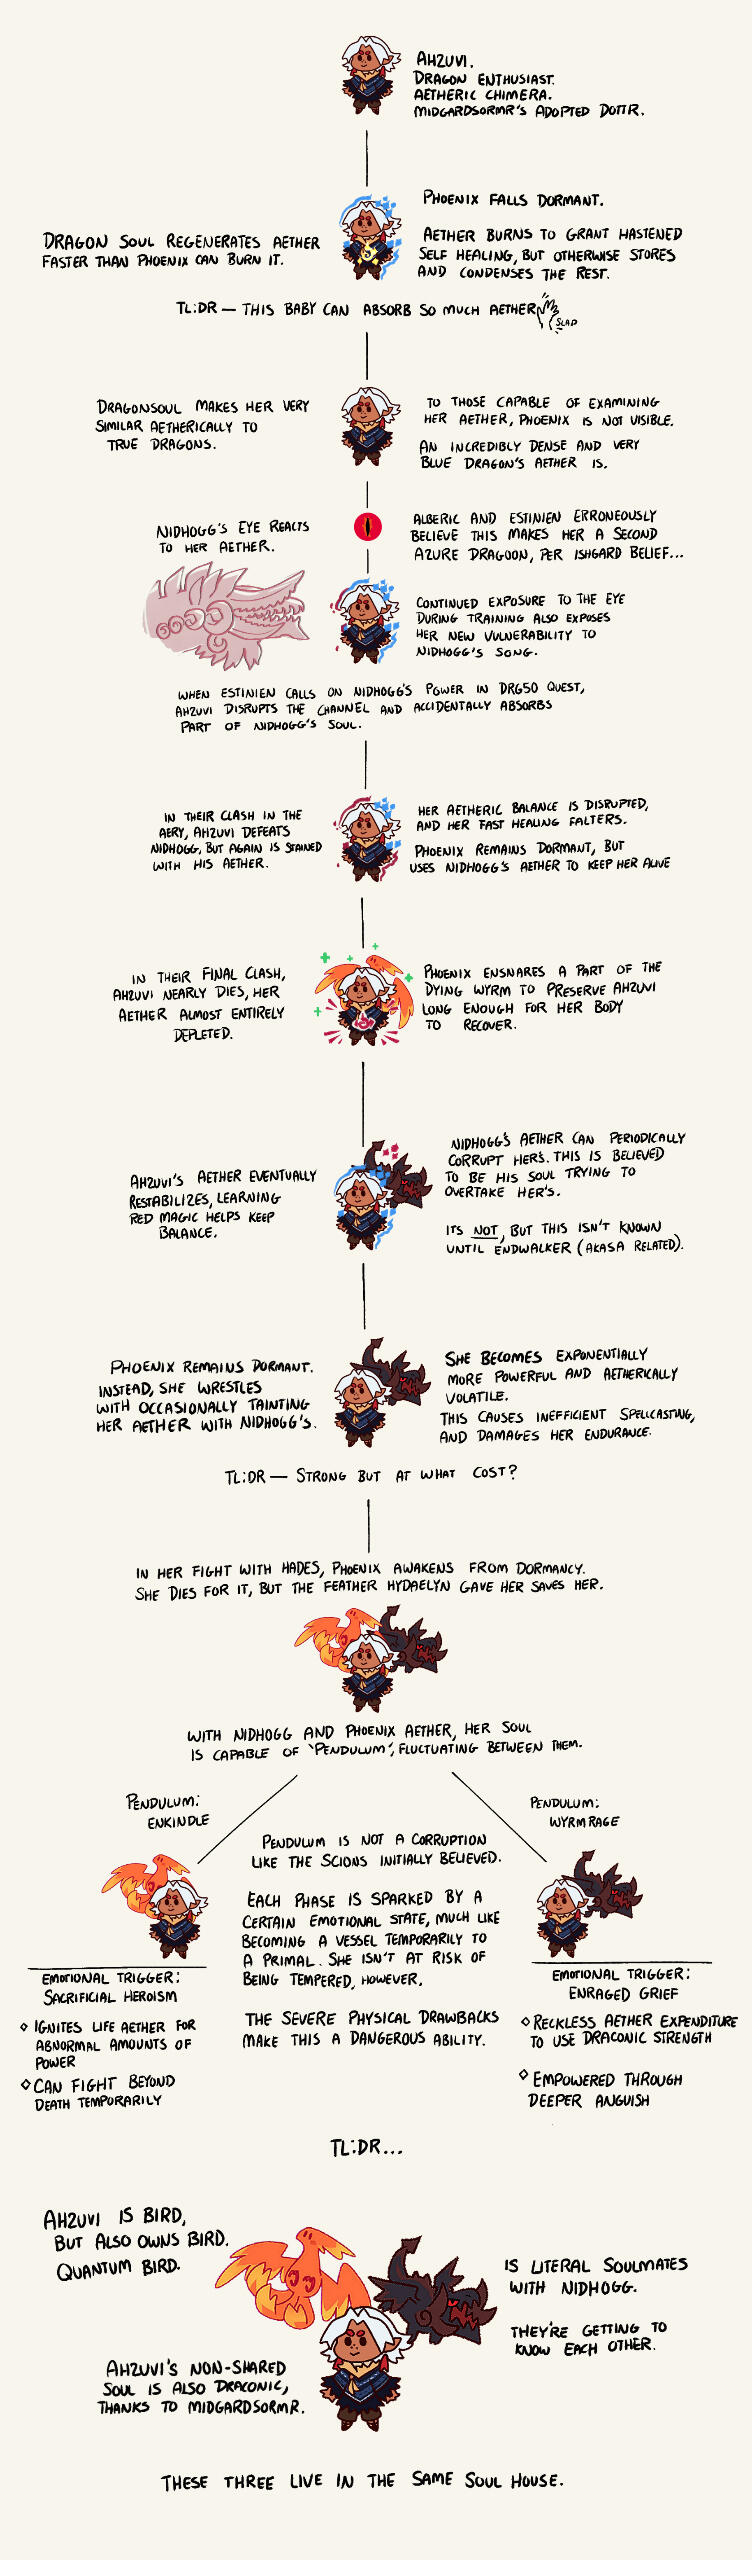 AHZUVI.
DRAGON ENTHUSIAST.
AETHERIC CHIMERA.
MIDGARDSORMR'S ADOPTED DOTTR.
PHOENIX FALLS DORMANT.
AETHER BURNS TO GRANT HASTENED
SELF HEALING, BUT OTHERWISE STORES
AND CONDENSES THE REST.
DRAGON SOUL REGENERATES AETHER
FASTER THAN PHOENIX CAN BURN IT.
TL:DR — THIS BABY CAN ABSORB SO MUCH AETHER
SLAP
DRAGONSOUL MAKES HER VERY
SIMILAR AETHERICALLY TO
TRUE DRAGONS.
TO THOSE CAPABLE OF EXAMINING
HER AETHER, PHOENIX IS NOT VISIBLE.
AN INCREDIBLY DENSE AND VERY
BLUE DRAGON'S AETHER IS.
NIDHOGG'S EYE REACTS
TO HER AETHER.
ALBERIC AND ESTINIEN ERRONEOUSLY
BELIEVE THIS MAKES HER A SECOND
AZURE DRAGOON, PER ISHGARD BELIEF...
CONTINUED EXPOSURE TO THE EYE
DURING TRAINING ALSO EXPOSES
HER NEW VULNERABILITY TO
NIDHOGG'S SONG.
WHEN ESTINIEN CALLS ON NIDHOGG'S POWER IN DRG50 QUEST,
AHZUVI DISRUPTS THE CHANNEL AND ACCIDENTALLY ABSORBS
PART OF NIDHOGG'S SOUL.
IN THEIR CLASH IN THE
AERY, AHZUVI DEFEATS
NIDHOGG, BUT AGAIN IS STAINED
WITH HIS AETHER.
HER AETHERIC BALANCE IS DISRUPTED,
AND HER FAST HEALING FALTERS.
PHOENIX REMAINS DORMANT, BUT
USES NIDHOGG'S AETHER TO KEEP HER ALIVE
IN THEIR FINAL CLASH,
AHZUVI NEARLY DIES, HER
AETHER ALMOST ENTIRELY
DEPLETED.
PHOENIX ENSNARES A PART OF THE
DYING WYRM TO PRESERVE AHZUVI
LONG ENOUGH FOR HER BODY
TO RECOVER.
AHZUVI'S AETHER EVENTUALLY
RESTABILIZES, LEARNING
RED MAGIC HELPS KEEP
BALANCE.
NIDHOGG'S AETHER CAN PERIODICALLY
CORRUPT HERS. THIS IS BELIEVED
TO BE HIS SOUL TRYING TO
OVERTAKE HER'S.
ITS NOT, BUT THIS ISN'T KNOWN
UNTIL ENDWALKER (AKASA RELATED).
PHOENIX REMAINS DORMANT.
INSTEAD, SHE WRESTLES
WITH OCCASIONALLY TAINTING
HER AETHER WITH NIDHOGG'S.
SHE BECOMES EXPONENTIALLY
MORE POWERFUL AND AETHERICALLY
VOLATILE.
THIS CAUSES INEFFICIENT SPELLCASTING,
AND DAMAGES HER ENDURANCE.
TL:DR — STRONG BUT AT WHAT COST?
IN HER FIGHT WITH HADES, PHOENIX AWAKENS FROM DORMANCY.
SHE DIES FOR IT, BUT THE FEATHER HYDAELYN GAVE HER SAVES HER.
WITH NIDHOGG AND PHOENIX AETHER, HER SOUL
IS CAPABLE OF 'PENDULUM', FLUCTUATING BETWEEN THEM.
PENDULUM:
ENKINDLE
PENDULUM:
WYRMRAGE
PENDULUM IS NOT A CORRUPTION
LIKE THE SCIONS INITIALLY BELIEVED.
EACH PHASE IS SPARKED BY A
CERTAIN EMOTIONAL STATE, MUCH LIKE
BECOMING A VESSEL TEMPORARILY TO
A PRIMAL. SHE ISN'T AT RISK OF
BEING TEMPERED, HOWEVER.
THE SEVERE PHYSICAL DRAWBACKS
MAKE THIS A DANGEROUS ABILITY.
EMOTIONAL TRIGGER:
SACRIFICIAL HEROISM
◇ IGNITES LIFE AETHER FOR
ABNORMAL AMOUNTS OF
POWER
◇ CAN FIGHT BEYOND
DEATH TEMPORARILY
EMOTIONAL TRIGGER:
ENRAGED GRIEF
◇ RECKLESS AETHER EXPENDITURE
TO USE DRACONIC STRENGTH
◇ EMPOWERED THROUGH
DEEPER ANGUISH
TL:DR...
AHZUVI IS BIRD,
BUT ALSO OWNS BIRD.
QUANTUM BIRD.
IS LITERAL SOULMATES
WITH NIDHOGG.
THEY'RE GETTING TO
KNOW EACH OTHER.
AHZUVI'S NON-SHARED
SOUL IS ALSO DRACONIC,
THANKS TO MIDGARDSORMR.
THESE THREE LIVE IN THE SAME SOUL HOUSE.